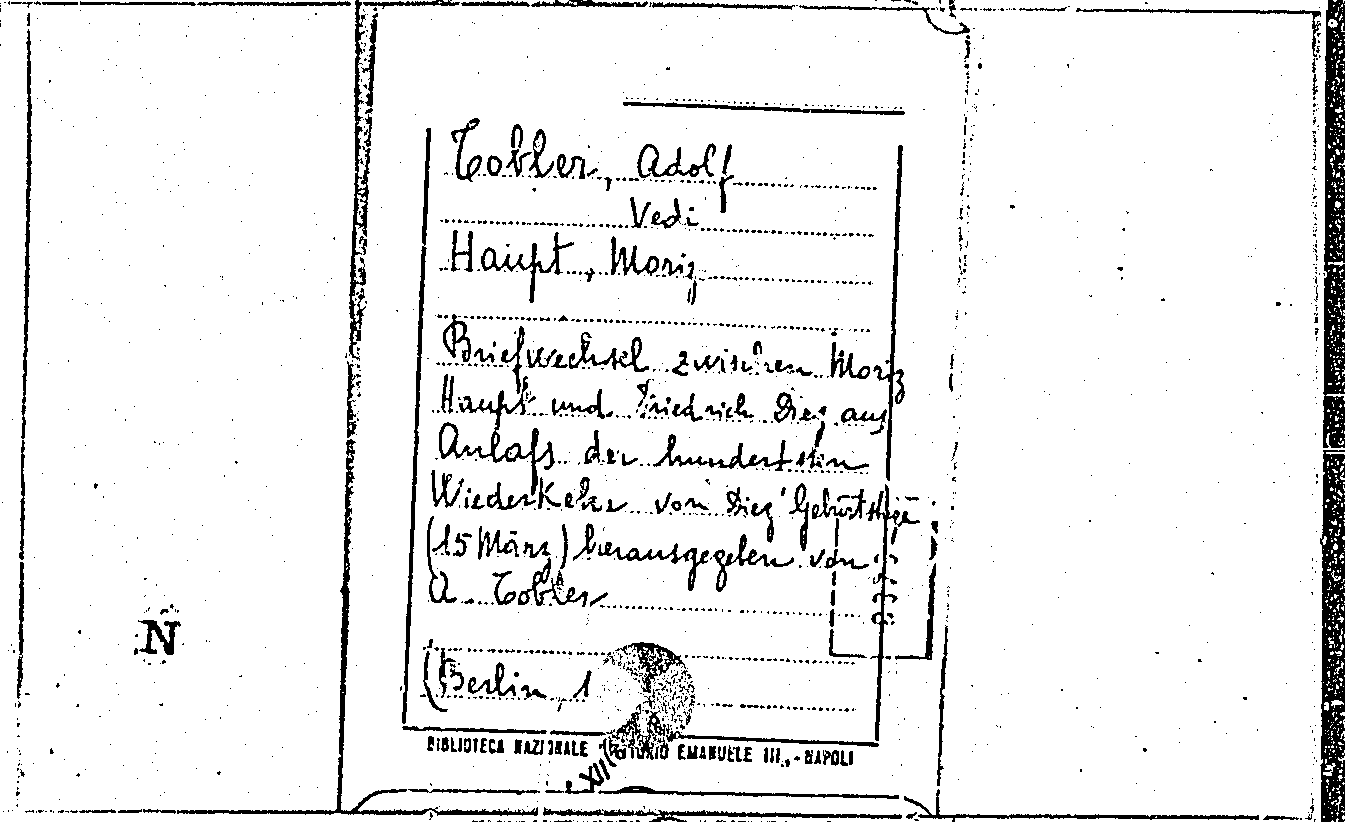 Tobler, Adolf
Vedi
Haupt, Moriz
Briefwechsel zwischen Moriz
Haupt und Friedrich Diez aus
Anlaſs der hundertsten
Wiederkehr von Diez' Geburtstage
(15 März) herausgegeben von
A. Tobler
(Berlin, 1
N
BIBLIOTECA NAZIONALE VITTORIO EMANUELE III - NAPOLI
XII